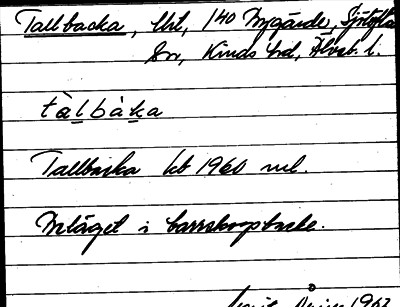 Tallbacka, lht, 1/40 Nygärde, Sjötofta
Sn, Kinds hd, Älvsb. l.
tàlbàka
Tallbacka kb 1960 rel.
Inläget i barrskogsbacke.
1962